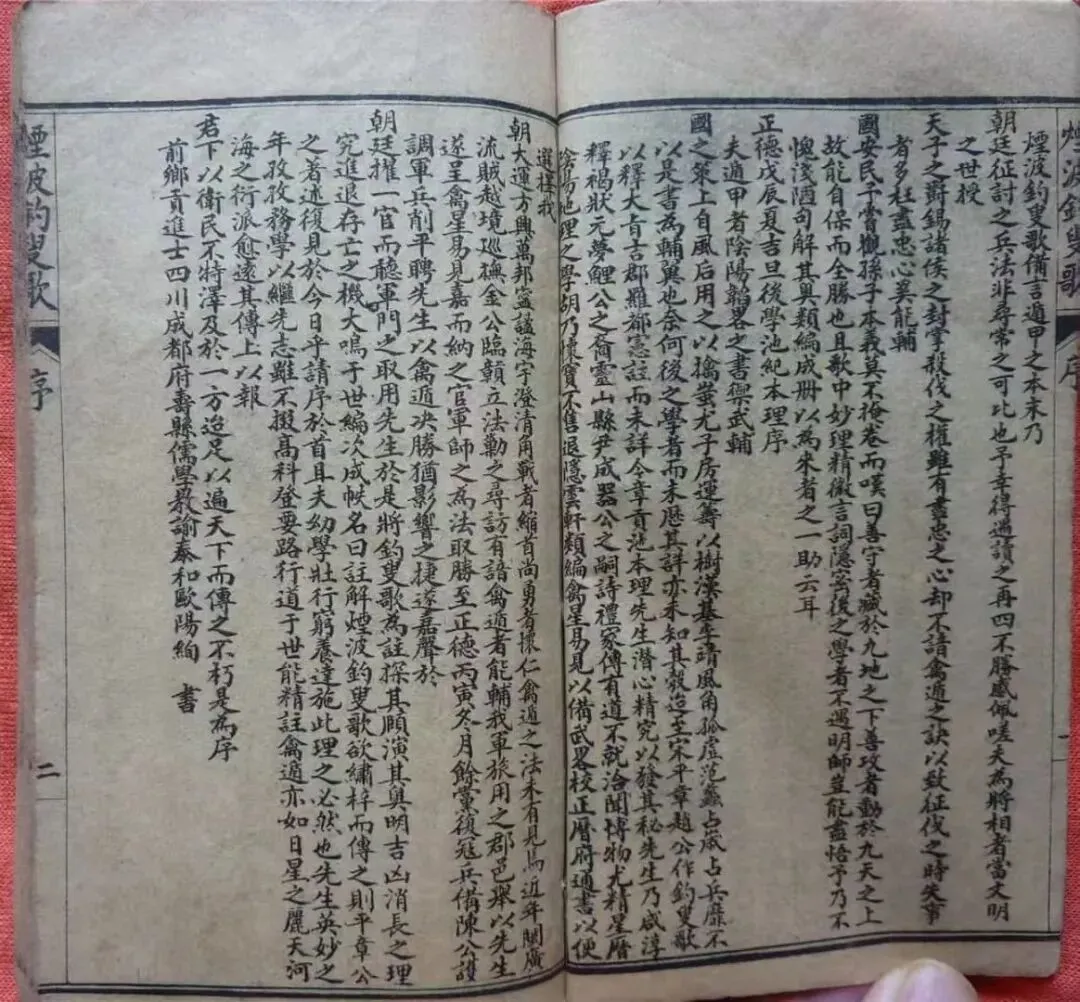 煙波釣叟歌 序
煙波釣叟歌備言遁甲之本末乃
朝廷征討之兵法非尋常之可比也予幸得遇讀之再四不勝感佩嗟夫為將相者當文明
之世授
天子之爵錫諸侯之封掌殺伐之權雖有盡忠之心却不請禽遁之訣以致征伐之時失事
者多枉盡忠心奚能輔
國安民予嘗觀孫子本義莫不掩卷而嘆曰善守者藏於九地之下善攻者動於九天之上
故能自保而全勝也且歌中妙理精微言詞隱宻後之學者不遇明師豈能盡悟予乃不
愧淺陋句解其奧類編成册以為来者之一助云耳
正德戊辰夏吉旦後學池紀本理序
夫遁甲者陰陽韜畧之書禦武輔
國之策上自風后用之以擒蚩尤子房運籌以樹漢基至晴風角孤虛范蠡占威占兵靡不
以是書為輔興也奈何後之學者而未歷其詳亦未知其榖造至宋平章趙公作釣叟歌
以釋大肯古郡羅都憲註而未詳今章貢池本理先生潜心精究以發其秘先生乃咸淳
釋褐狀元夢鯉公之裔靈山縣尹成器公之嗣詩禮家傳有道不就洽聞博物尤精星曆
陰陽地理之學胡乃懷寶不售退隱雲軒類編禽星易見以備武畧校正曆府通書以便
選擇我
朝大運方興萬邦寧謐海宇澄清角戰者縮首尚勇者懷仁禽遁之法未有見焉近年閩廣
流賊越境巡撫金公臨贛立法勦之尋訪有諳禽遁者能輔我軍旅用之郡邑舉以先生
遂呈禽星易見嘉而納之官軍師之為法取勝至正德丙寅冬月餘黨復冦兵備陳公護
調軍兵削平聘先生以禽遁决勝猶影響之捷遂嘉聲於
朝廷擢一官而聽軍門之取用先生於是將釣叟歌為註探其賾演其奥明吉凶消長之理
究進退存亡之機大鳴于世編次成帙名曰註解煙波釣叟歌欲繡梓而傳之則平章公
之著述復見於今日乎請序於首且夫幼學壯行窮養達施此理之必然也先生英妙之
年孜孜務學以繼先志雖不掇高科登要路行道于世能精註禽遁亦如日星之麗天河
海之衍派愈遠其傳上以報
君下以衛民不特澤及於一方迨足以遍天下而傳之不朽是為序
前鄉貢進士四川成都府壽縣儒學教諭泰和歐陽絢 書
煙波釣叟歌 序 二